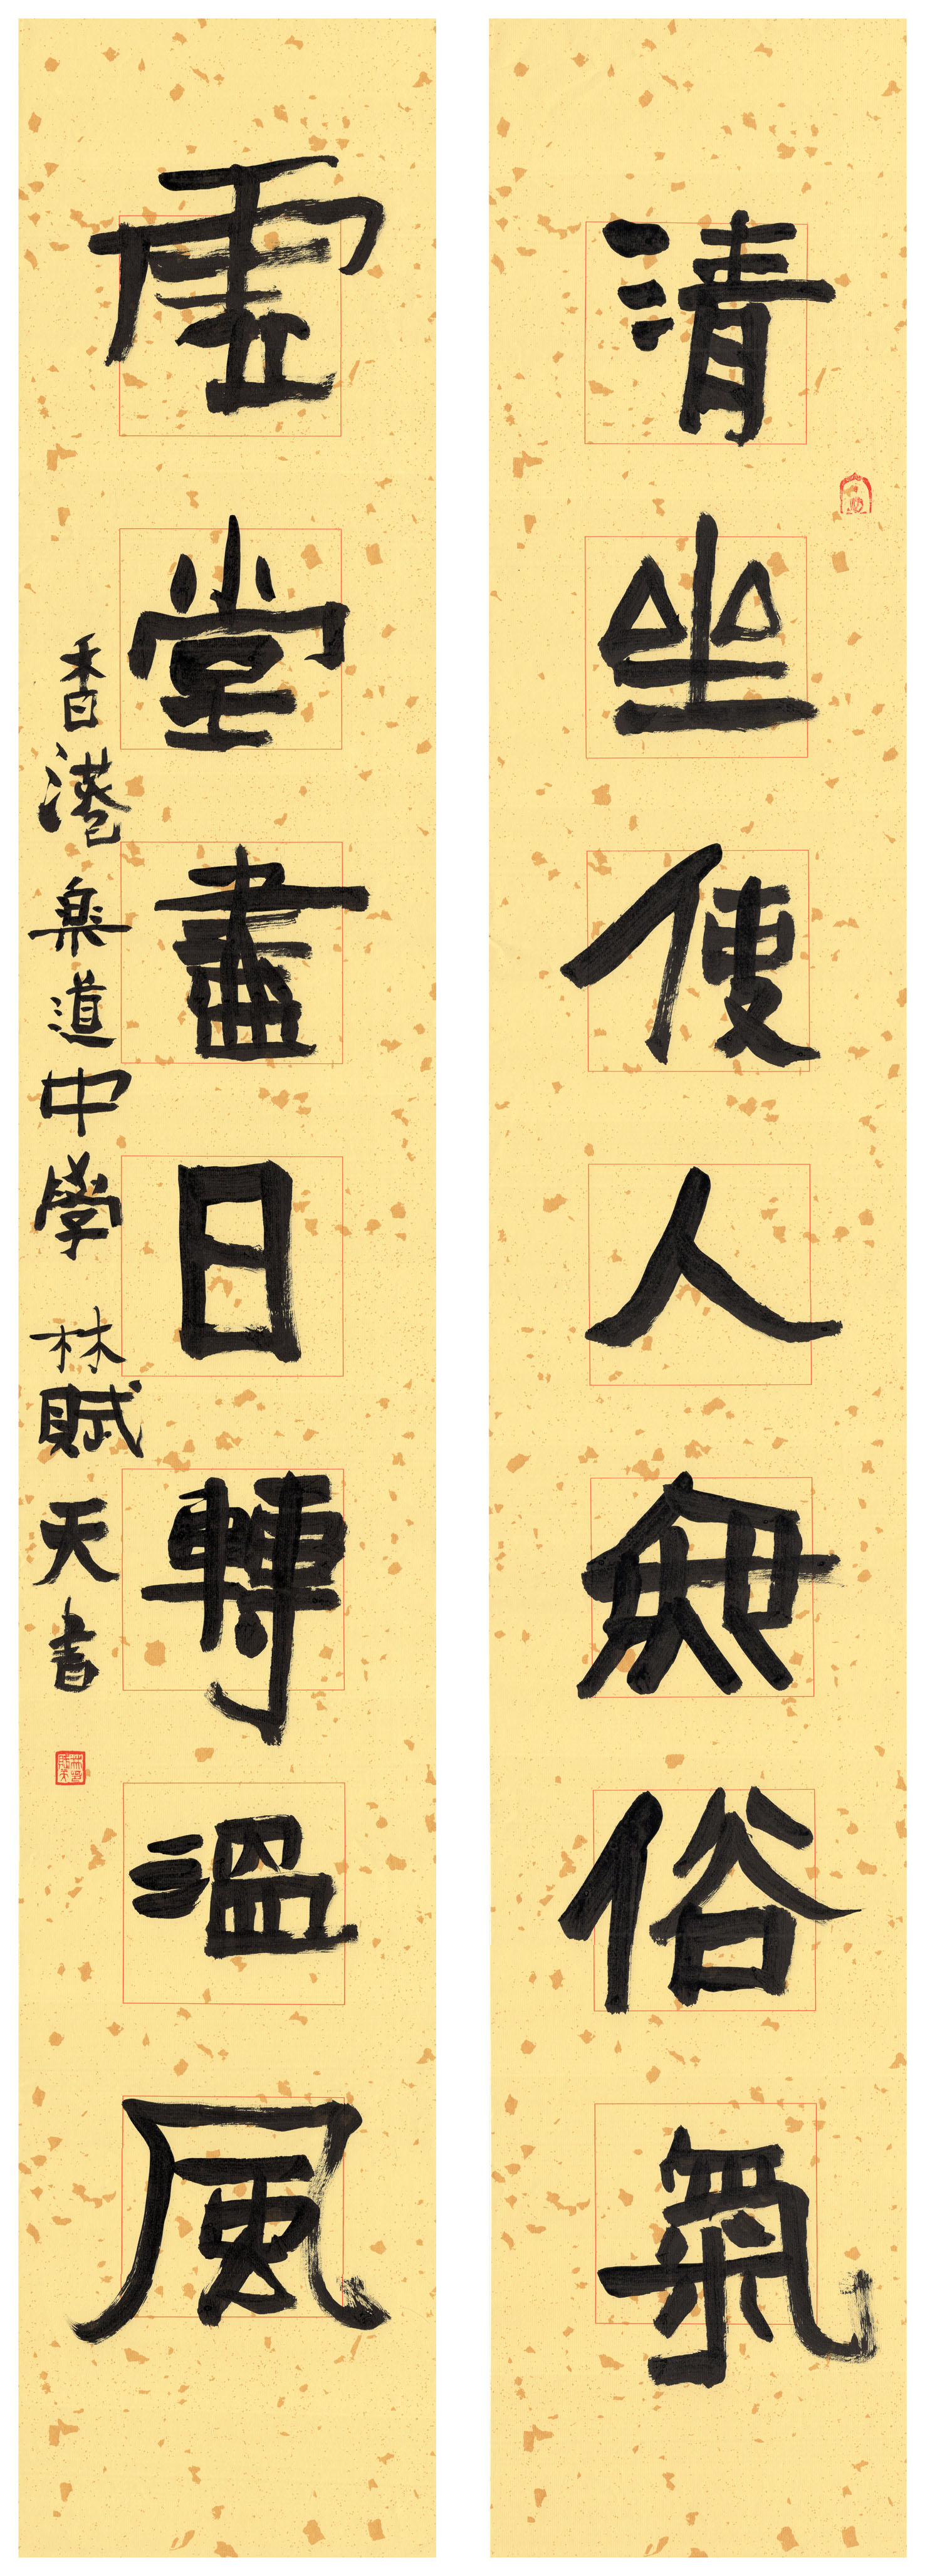 清坐使人無俗氣
虛堂盡日轉溫風
香港樂道中學 林賦天書